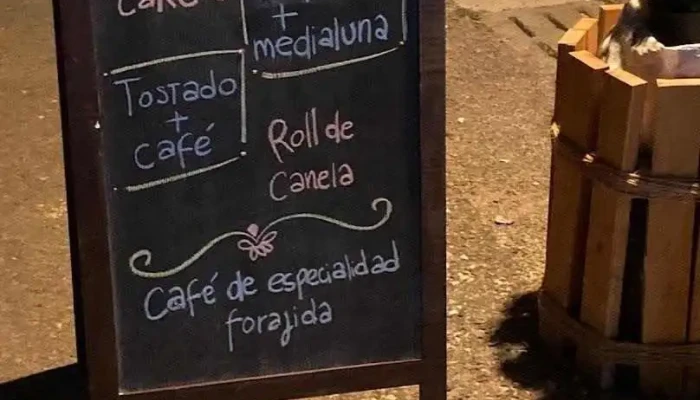 CAKE
+
medialuna
Tostado
+
café
Roll de
Canela
Café de especialidad
forajida